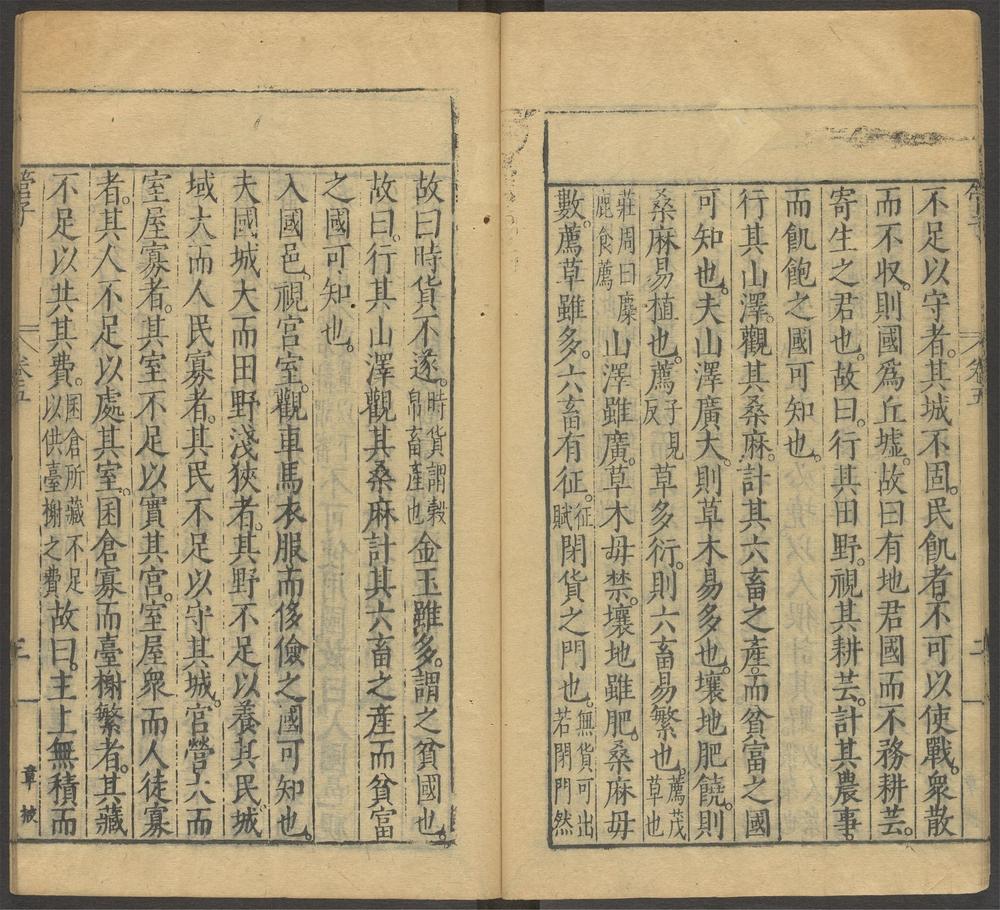 不足以守者。其城不固。民飢者。不可以使戰。衆散
而不收。則國爲丘墟。故曰有地君國而不務耕芸。
寄生之君也。故曰。行其田野。視其耕芸。計其農事。
而飢飽之國可知也。
行其山澤。觀其桑麻。計其六畜之產。而貧富之國
可知也。夫山澤廣大。則草木易多也。壤地肥饒。則
桑麻易植也。薦子見反草多衍。則六畜易繁也。薦茂草也
莊周曰麋鹿食薦山澤雖廣。草木毋禁。壤地雖肥。桑麻毋
數。薦草雖多。六畜有征。征賦閉貨之門也。無貨可出若閉門然
故曰時貨不遂。時貨謂穀帛畜產也金玉雖多。謂之貧國也。
故曰。行其山澤觀其桑麻計其六畜之產而貧富
之國可知也。
入國邑。視宮室。觀車馬衣服而侈儉之國可知也。
夫國城大而田野淺狹者。其野不足以養其民。城
域大而人民寡者。其民不足以守其城。宮營大而
室屋寡者。其室不足以實其宮。室屋衆而人徒寡
者。其人不足以處其室。囷倉寡而臺榭繁者。其藏
不足以共其費。囷倉所藏不足以供臺榭之費故曰。主上無積而
管子
卷五
三
章掖